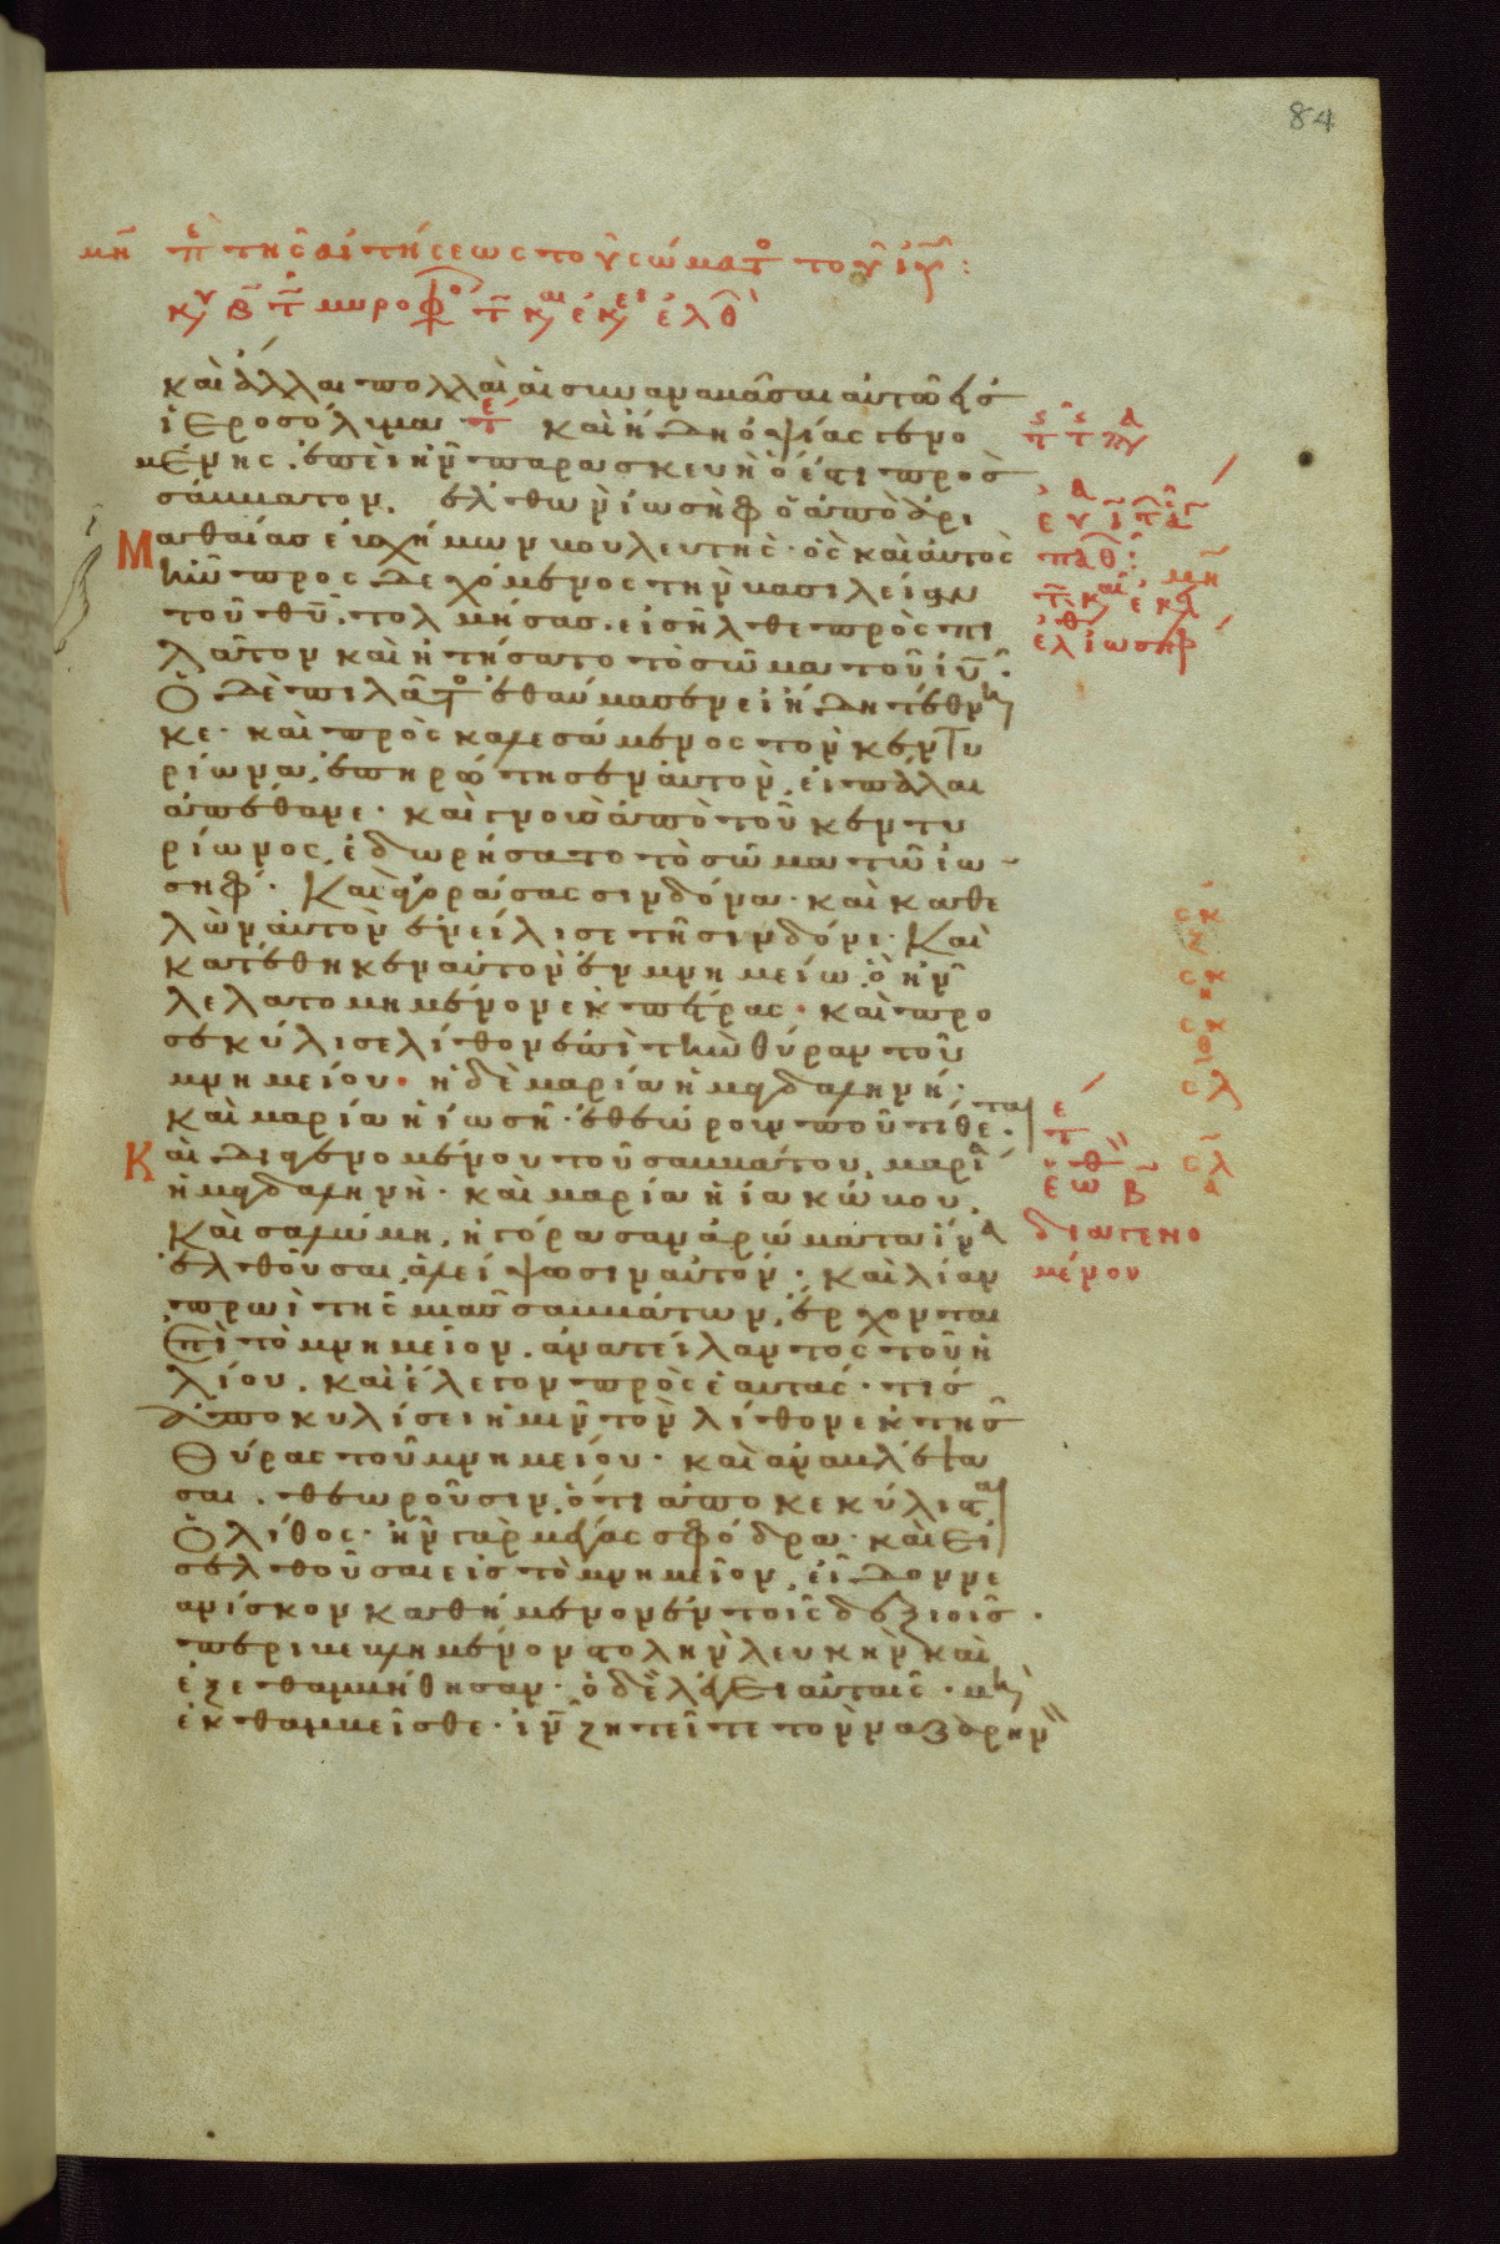 84
μη π ε της αἰτήσεως τοῦ σώματο τοῦ ἰυ:
κυ β τ μυροφο τ κ αι ἐκει ἐλθ
καὶ ἄλλαι πολλαὶ αἱ συναναβᾶσαι αὐτῶ εἰσ
ἱεροσόλυμα· τε καὶ ἤδη ὀψίας γενο
μένης. ἐπεὶ ἦν παρασκευὴ ὅ ἐστι προσ
σάββατον. ἐλθὼν ἰωσὴφ ὁ ἀπὸ ἀρι
Μαθαίας εὐσχήμων βουλευτὴς· ὃς καὶ αὐτὸς
ἦν προσδεχόμενος τὴν βασιλείαν
τοῦ θυ. τολμήσας. εἰσῆλθε πρὸς πι
λάτον καὶ ἠτήσατο τὸ σῶμα τοῦ ἰυ·
Ὁ δὲ πιλάτο ἐθαύμασεν εἰ ἤδη τέθνη
κε· καὶ προσκαλεσάμενος τὸν κεντυ
ρίωνα, ἐπηρώτησεν αὐτὸν, εἰ πάλαι
ἀπέθανε· καὶ γνοὺς ἀπὸ τοῦ κεντυ
ρίωνος, ἐδωρήσατο τὸ σῶμα τῶ ἰω
σήφ· Καὶ ἀγοράσας σινδόνα· καὶ καθε
λὼν αὐτὸν ἐνείλισε τῆ σινδόνι· Καὶ
κατέθηκεν αὐτὸν ἐν μνημείω. ὃ ἦν
λελατομημένον ἐκ πέτρας· καὶ προ
σεκύλισε λίθον ἐπὶ τὴν θύραν τοῦ
μνημείου· ἡ δὲ μαρία ἡ μαγδαληνή·
καὶ μαρία ἡ ἰωσῆ· ἐθεώρουν ποῦ τίθε ται.
Καὶ διαγενομένου τοῦ σαββάτου, μαρία
ἡ μαγδαληνὴ· καὶ μαρία ἡ ἰακώβου.
Καὶ σαλώμη, ἠγόρασαν ἀρώματα ἵνα
ἐλθοῦσαι, ἀλείψωσιν αὐτόν· καὶ λίαν
πρωῒ τῆς μιᾶς σαββάτων, ἔρχονται
ἐπὶ τὸ μνημεῖον. ἀνατείλαντος τοῦ ἡ
λίου. καὶ ἔλεγον πρὸς ἑαυτάς· τίς
ἀποκυλίσει ἡμῖν τὸν λίθον ἐκ τῆς
Θύρας τοῦ μνημείου· καὶ ἀναβλέψα
σαι. θεωροῦσιν, ὅτι ἀποκεκύλισται
Ὁ λίθος· ἦν γὰρ μέγας σφόδρα· καὶ εἰ
σελθοῦσαι εἰς τὸ μνημεῖον, εἶδον νε
ανίσκον καθήμενον ἐν τοῖς δεξιοῖς·
περιβεβλημένον στολὴν λευκὴν καὶ
ἐξεθαμβήθησαν· ὁ δὲ λέγει αὐταῖς· μὴ
ἐκθαμβεῖσθε· ιν ζητεῖτε τὸν ναζαρην
ἐλ ἰωσηφ
σκ
ζ
σκ
η
σκ
θ
σλ
σλ
α
ἑω β
διαγενο
μένου